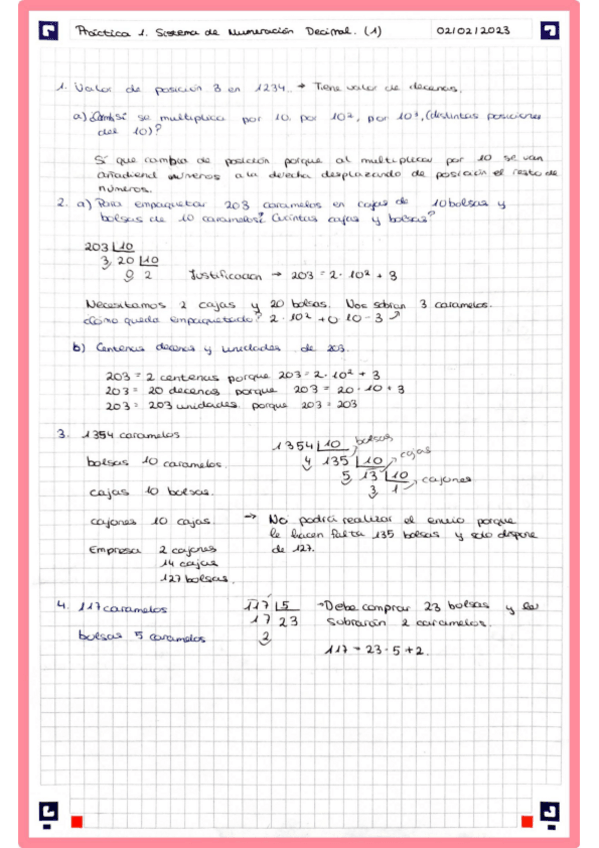 Práctica 1. Sistema de Numeración Decimal. (1) 02/02/2023
1. Valor de posición 3 en 1234. → Tiene valor de decenas.
a) ¿ si se multiplica por 10, por 10², por 10³, (distintas posiciones
del 10)?
Sí que cambia de posición porque al multiplicar por 10 se van
añadiend números a la derecha desplazando de posición el resto de
números.
2. a) Para empaquetar 203 caramelos en cajas de 10 bolsas y
bolsas de 10 caramelos? Cuántas cajas y bolsas?
203 10
3 20 10
0 2 Justificación → 203 = 2· 10² + 3
Necesitamos 2 cajas y 20 bolsas. Nos sobran 3 caramelos.
¿Cómo queda empaquetado? 2·10² + 0·10 - 3
b) Centenas decenas y unidades de 203.
203 = 2 centenas porque 203 = 2·10² + 3
203 = 20 decenas porque 203 = 20·10 + 3
203 = 203 unidades porque 203 = 203
3. 1354 caramelos
bolsas 10 caramelos.
cajas 10 bolsas.
cajones 10 cajas.
Empresa 2 cajones
14 cajas
127 bolsas.
1354 10 bolsas
4 135 10 cajas
5 13 10 cajones
3 1
→ No podrá realizar el envío porque
le hacen falta 135 bolsas y solo dispone
de 127.
4. 117 caramelos
bolsas 5 caramelos
117 5
17 23
2
→ Debe comprar 23 bolsas y le
sobrarán 2 caramelos.
117 = 23·5 + 2.